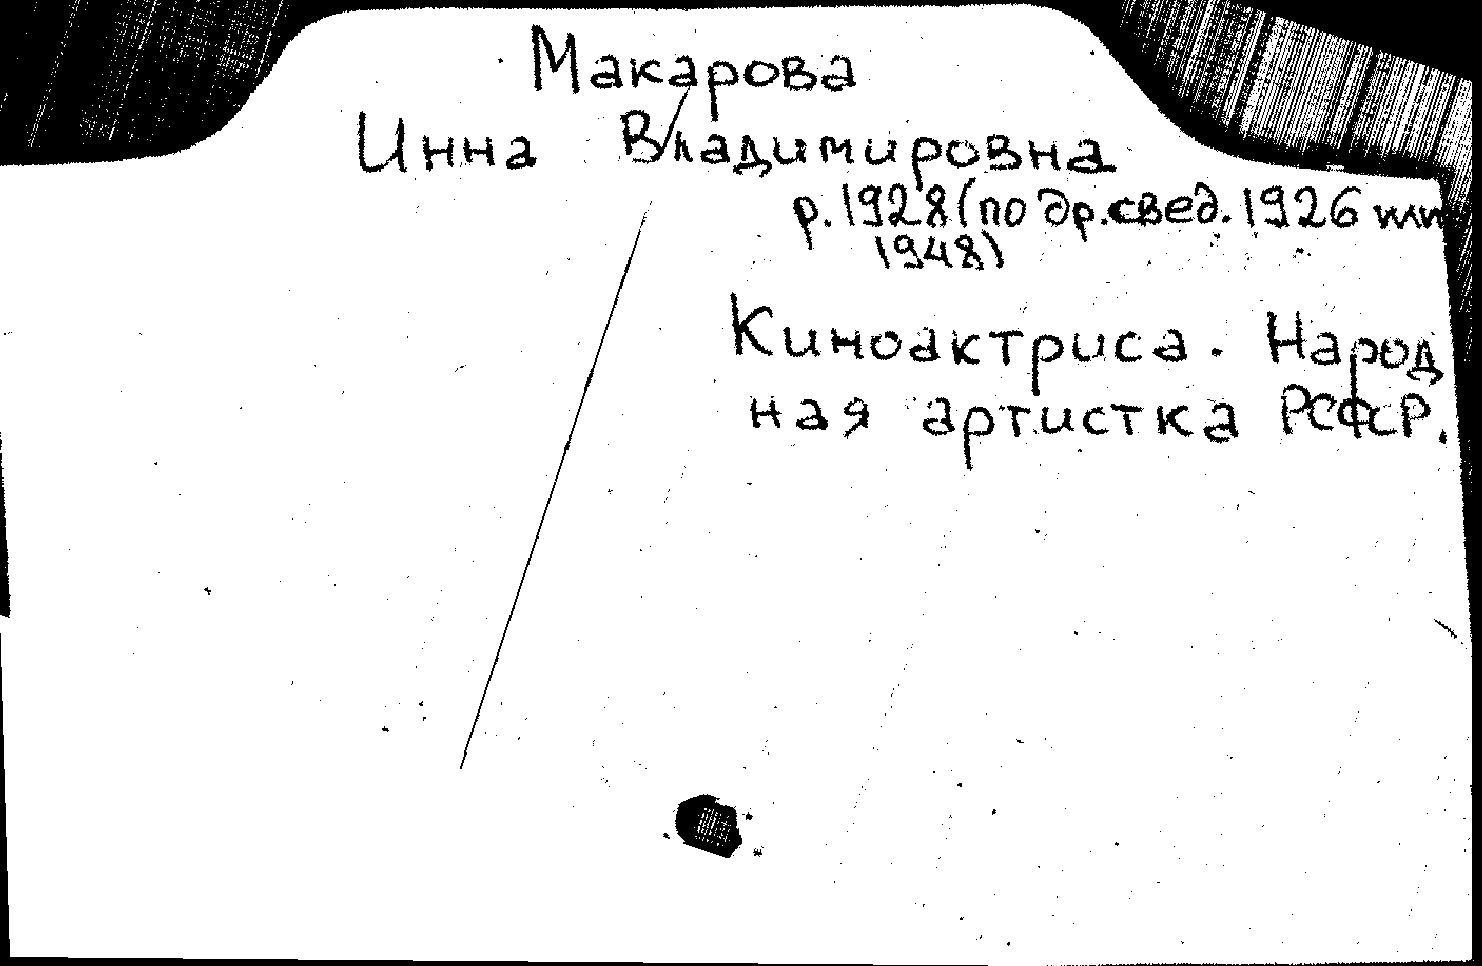 Макарова
Инна Владимировна
р. 1928 (по др. свед. 1926 или
1948)
Киноактриса. Народ
ная артистка РСФСР.